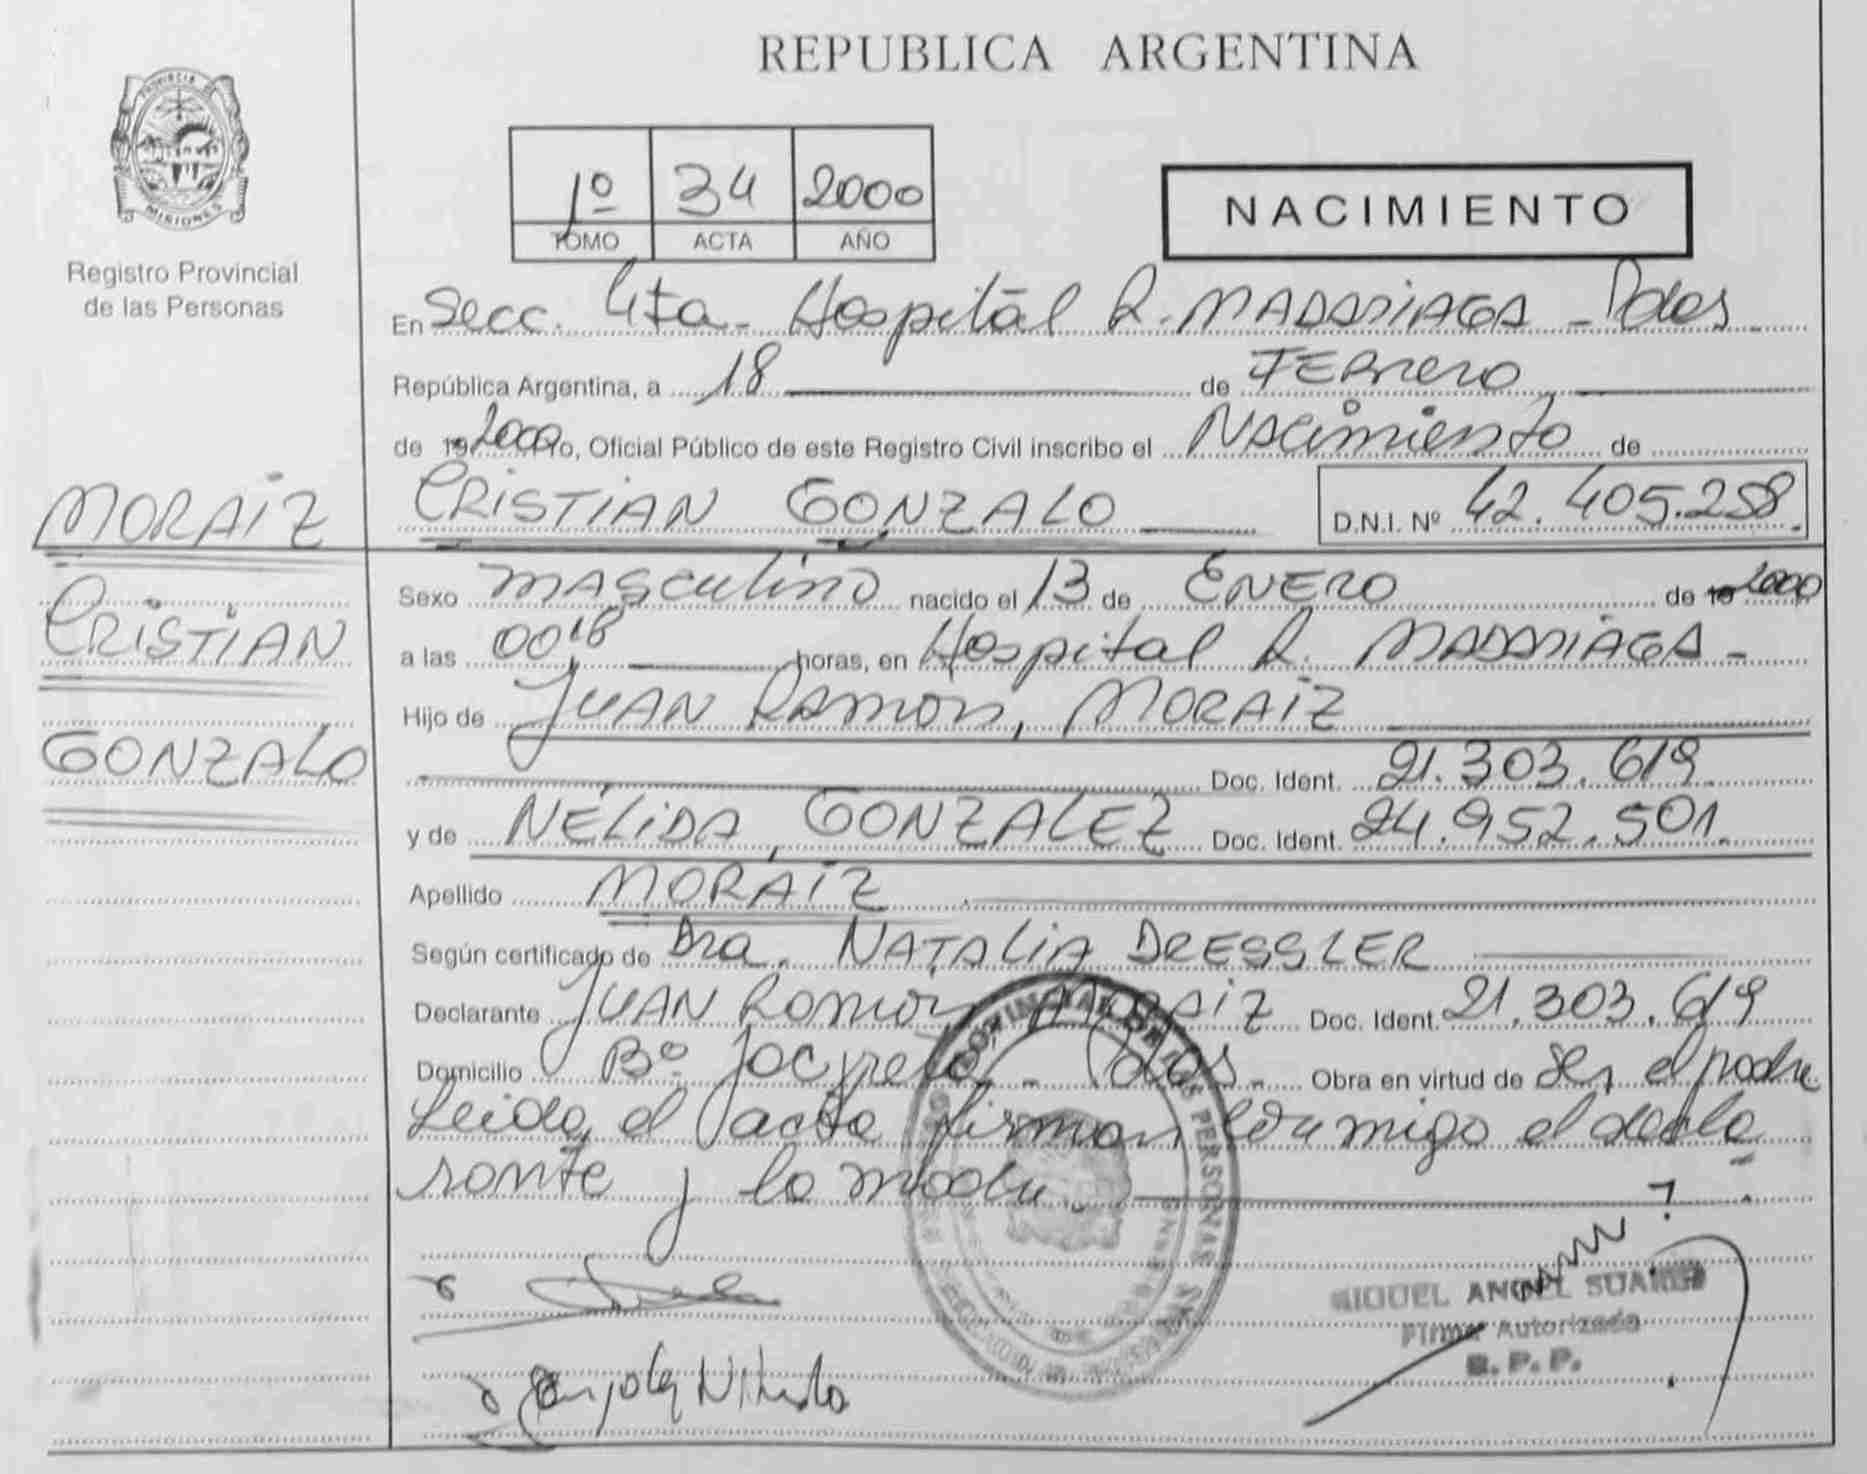 REPUBLICA ARGENTINA
PROVINCIA
MISIONES
Registro Provincial
de las Personas
1º 34 2000
TOMO ACTA AÑO
NACIMIENTO
En Secc. 4ta - Hospital R. MADARIAGA - Pdas
República Argentina, a 18 de FEBrero
de 19 2000 Yo, Oficial Público de este Registro Civil inscribo el Nacimiento de
MORAIZ CRISTIAN GONZALO D.N.I. Nº 42.405.258.
CRISTIAN
GONZALO
Sexo MASculino nacido el 13 de ENERO de 19 2000
a las 0018 horas, en Hospital R. MADARIAGA -
Hijo de JUAN RAMON, MORAIZ
Doc. Ident. 21.303.619.
y de NELIDA, GONZALEZ Doc. Ident. 24.952.501.
Apellido MORAIZ
Según certificado de Dra. NATALIA DRESSLER
Declarante JUAN Ramon MORAIZ Doc. Ident. 21.303.619
Domicilio Bº Yacyreta - Pdas - Obra en virtud de Ser el padre
Leida el acta firman conmigo el decla
rante y la madre.
MIGUEL ANGEL SUAREZ
Firma Autorizada
R. P. P.